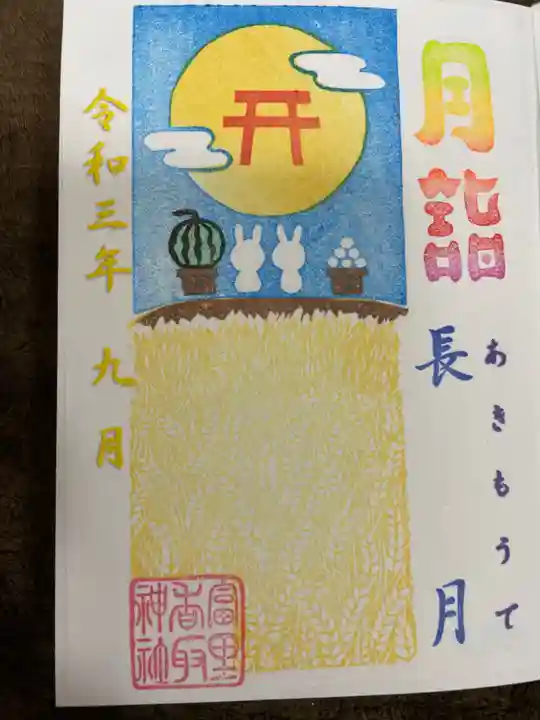 月詣
あきもうで
長月
令和三年 九月
富里
香取
神社